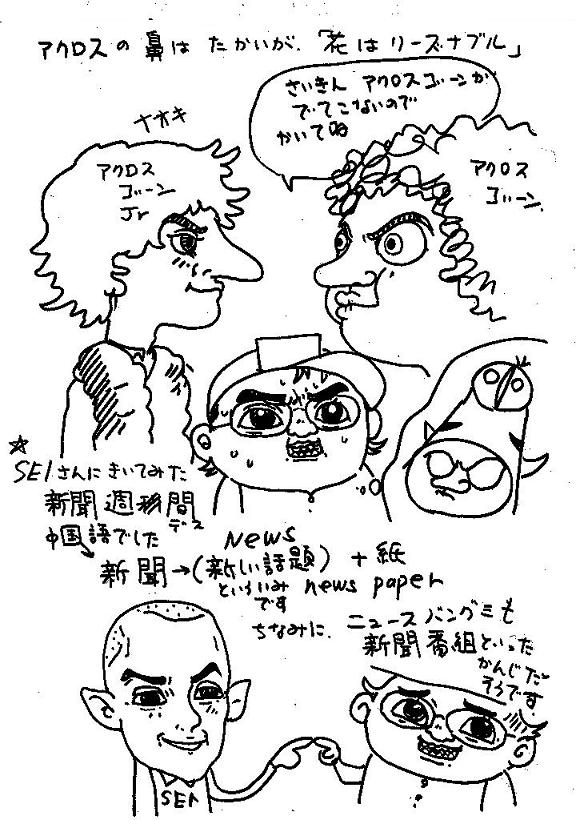 アクロスの鼻はたかいが、「花はリーズナブル」
さいきん アクロスゴーンが
でてこないので
かいてね
ナオキ
アクロス
ゴーン
Jr
アクロス
ゴーン.
☆
SEIさんにきいてみた
新聞週移間
デス
中国語でした
News
新聞→(新しい話題)+紙
といういみ news paper
です
ちなみに. ニュースバングミも
新聞番組といった
かんじだ
そうです.
SEI